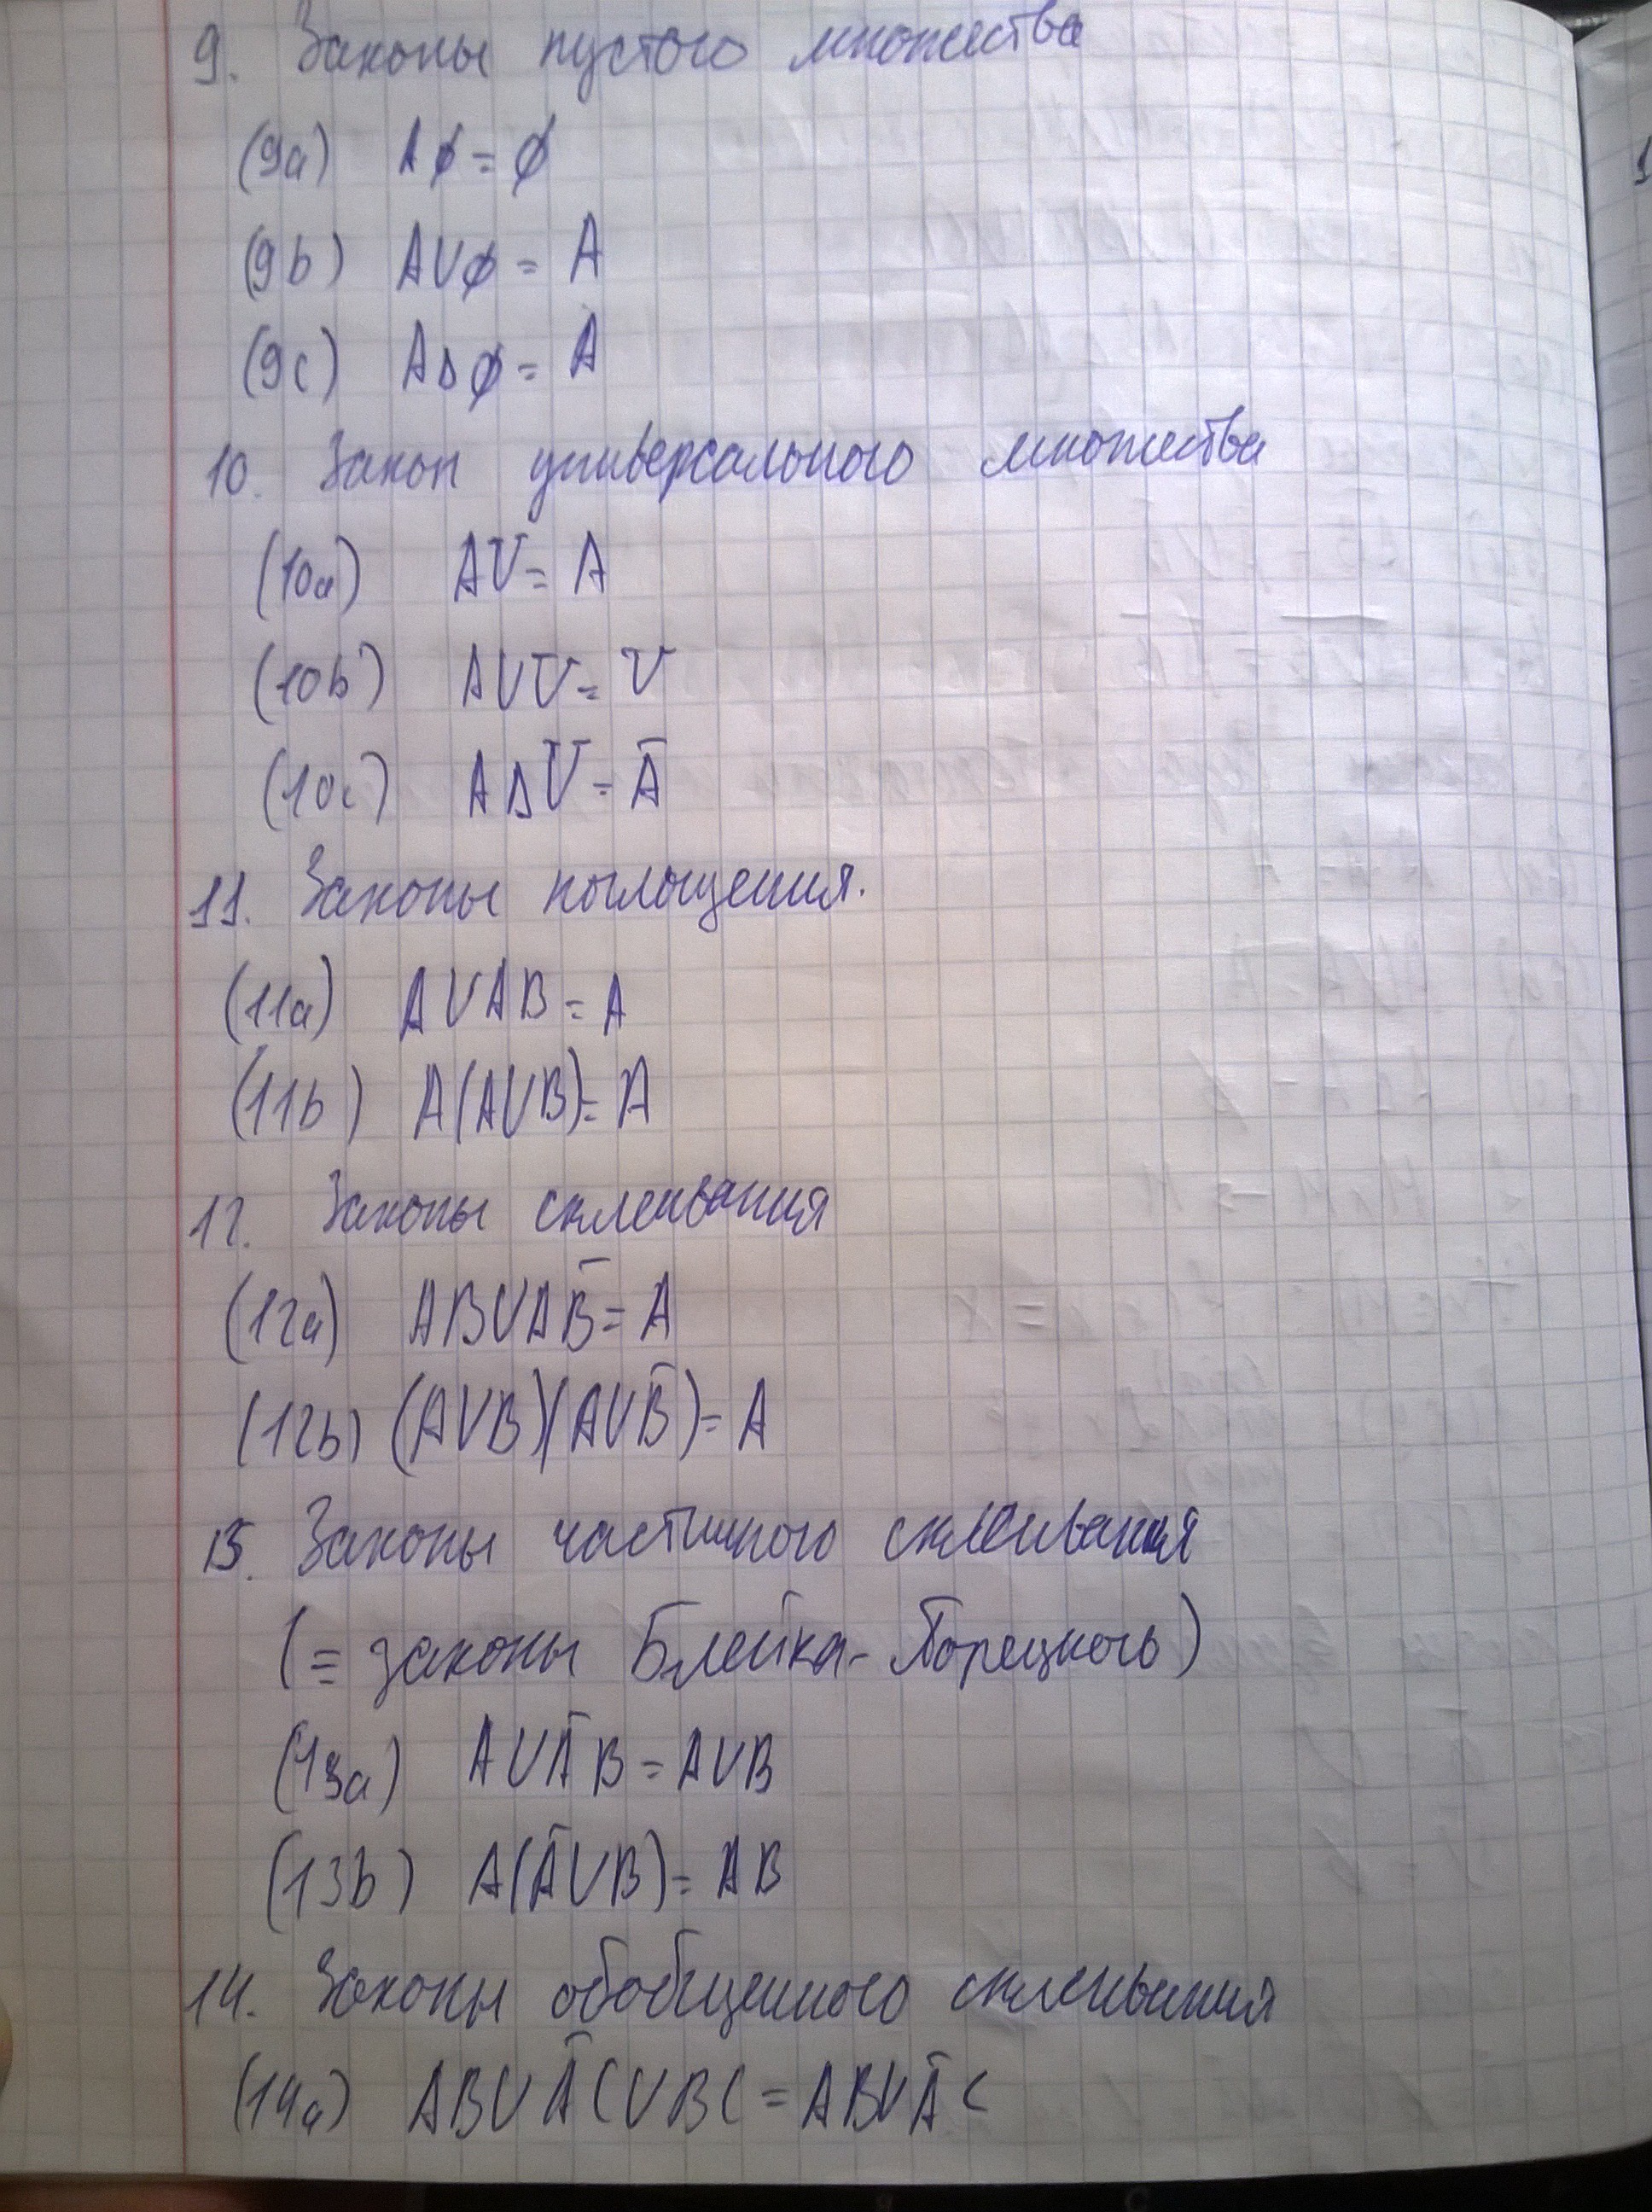 9. Законы пустого множества
(9a) A∅ = ∅
(9b) A∪∅ = A
(9c) A∆∅ = A
10. Закон универсального множества
(10a) AU = A
(10b) A∪U = U
(10c) A∆U = Ā
11. Законы поглощения.
(11a) A∪AB = A
(11b) A(A∪B) = A
12. Законы склеивания
(12a) AB∪AB̄ = A
(12b) (A∪B)(A∪B̄) = A
13. Законы частичного склеивания
(= законы Блейка-Порецкого)
(13a) A∪ĀB = A∪B
(13b) A(Ā∪B) = AB
14. Законы обобщенного склеивания
(14a) AB∪ĀC∪BC = AB∪ĀC